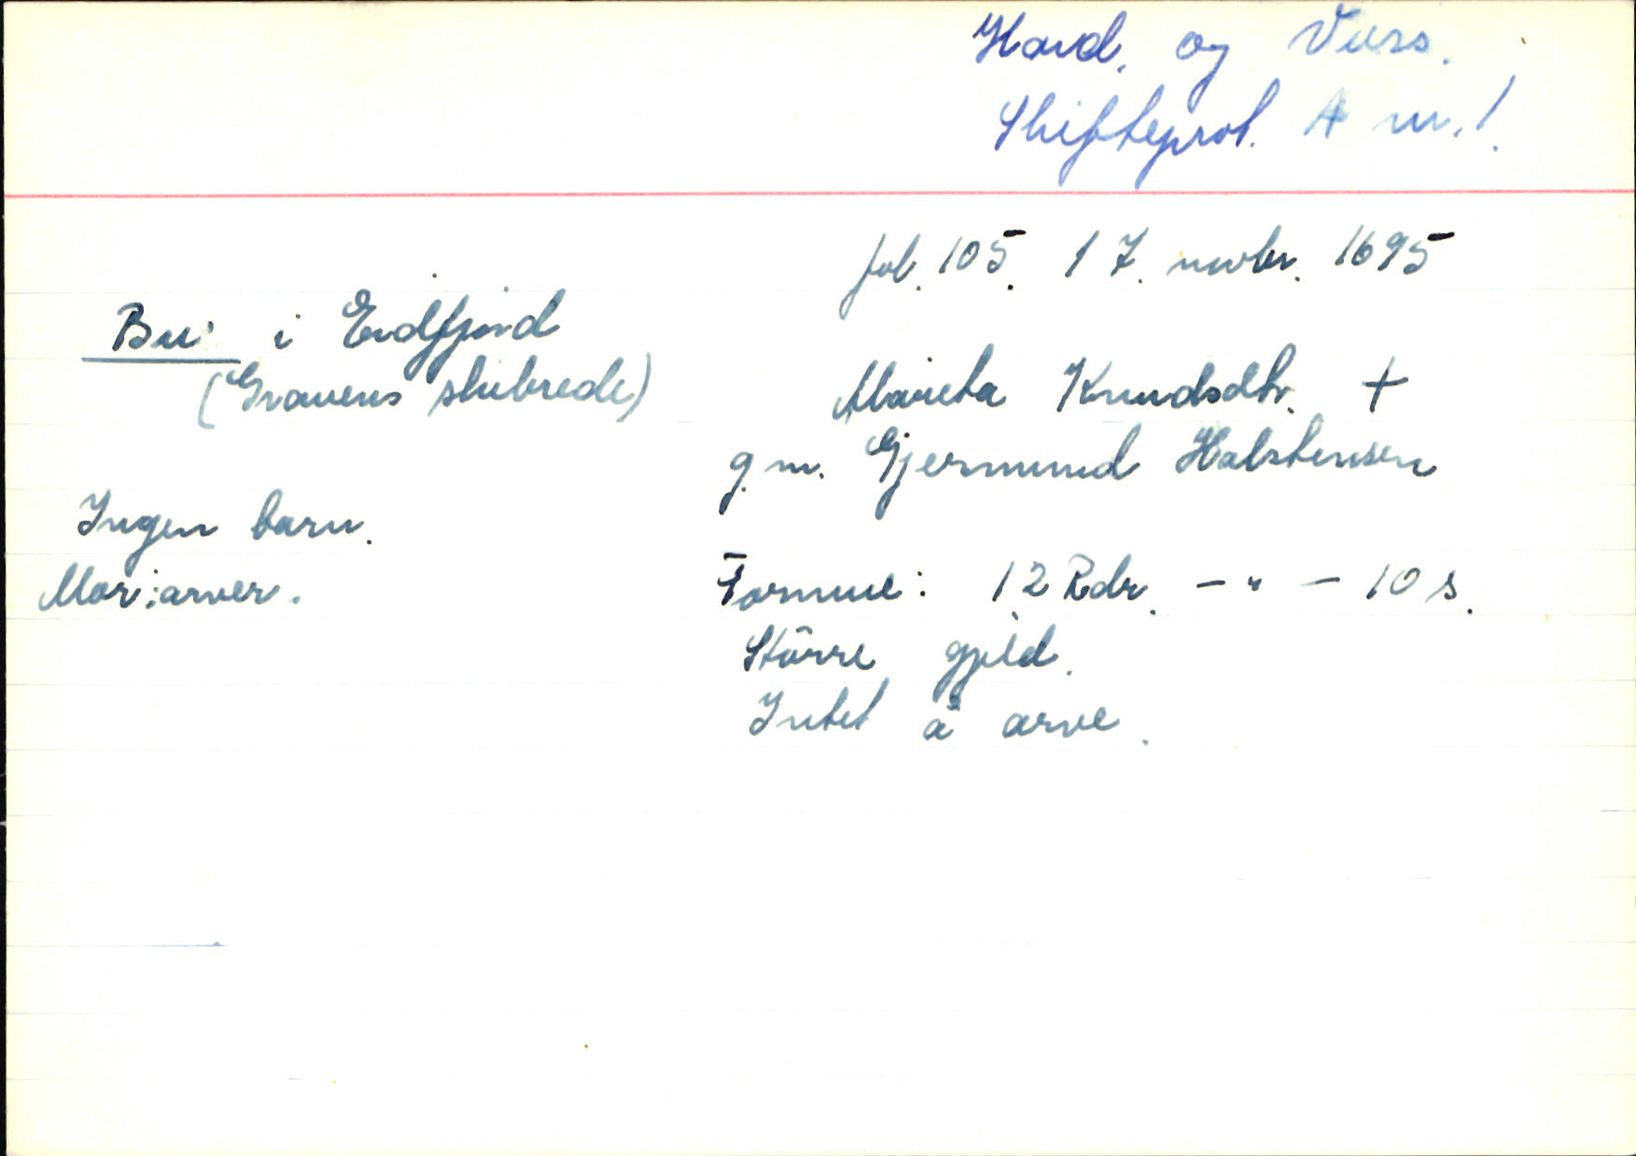 Hard. og Voss.
Skifteprot. A nr. 1.
fol. 105. 17. novbr. 1695
Bu i Eidfjord
(Gravens skibrede)
Marieta Knudsdtr. +
g. m. Gjermund Halstensen
Ingen barn.
Mor: arver.
Formue: 12 Rdr. - " - 10 s.
Större gjeld.
Intet å arve.